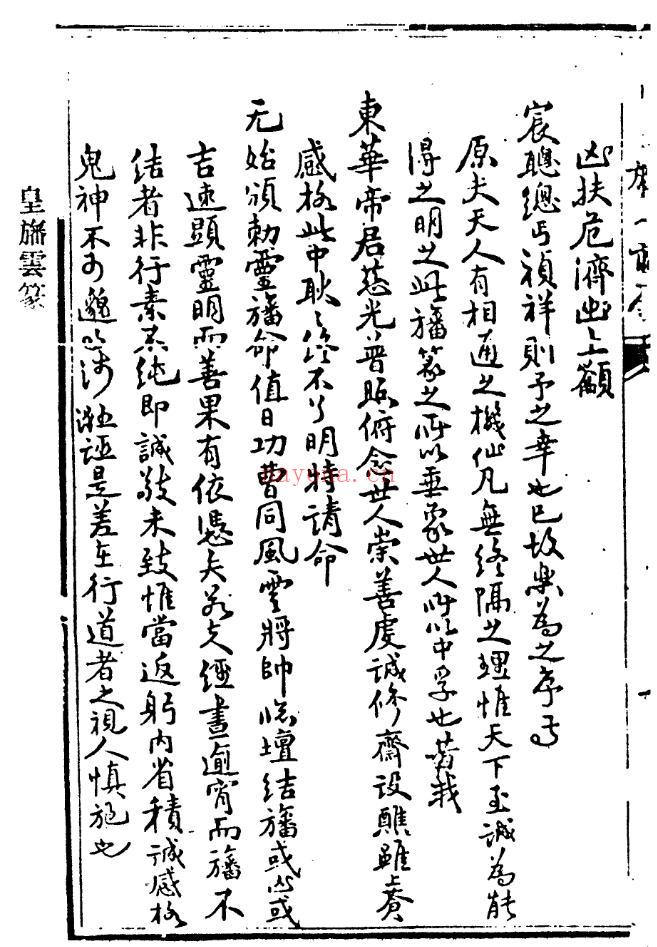 凶扶危濟幽上籲
宸聰總丐禎祥則予之幸也已故樂為之序焉
原夫天人有相通之機仙凡無終隔之理惟天下至誠為能
得之明之此旛篆之所以垂象世人所以中孚也昔哉
東華帝君慈光普照俯念世人崇善虔誠修齋設醮雖賫
感格此中耿々終不分明特請命
无始頒勅靈旛命值日功曹同風雲將帥臨壇結旛或凶或
吉速顯靈明而善果有依憑矣若夫經晝逾宵而旛不
結者非行素不純即誠敬未致惟當返躬內省積誠感格
鬼神不可邈以涉誣是差在行道者之視人慎施也
皇旛雲篆